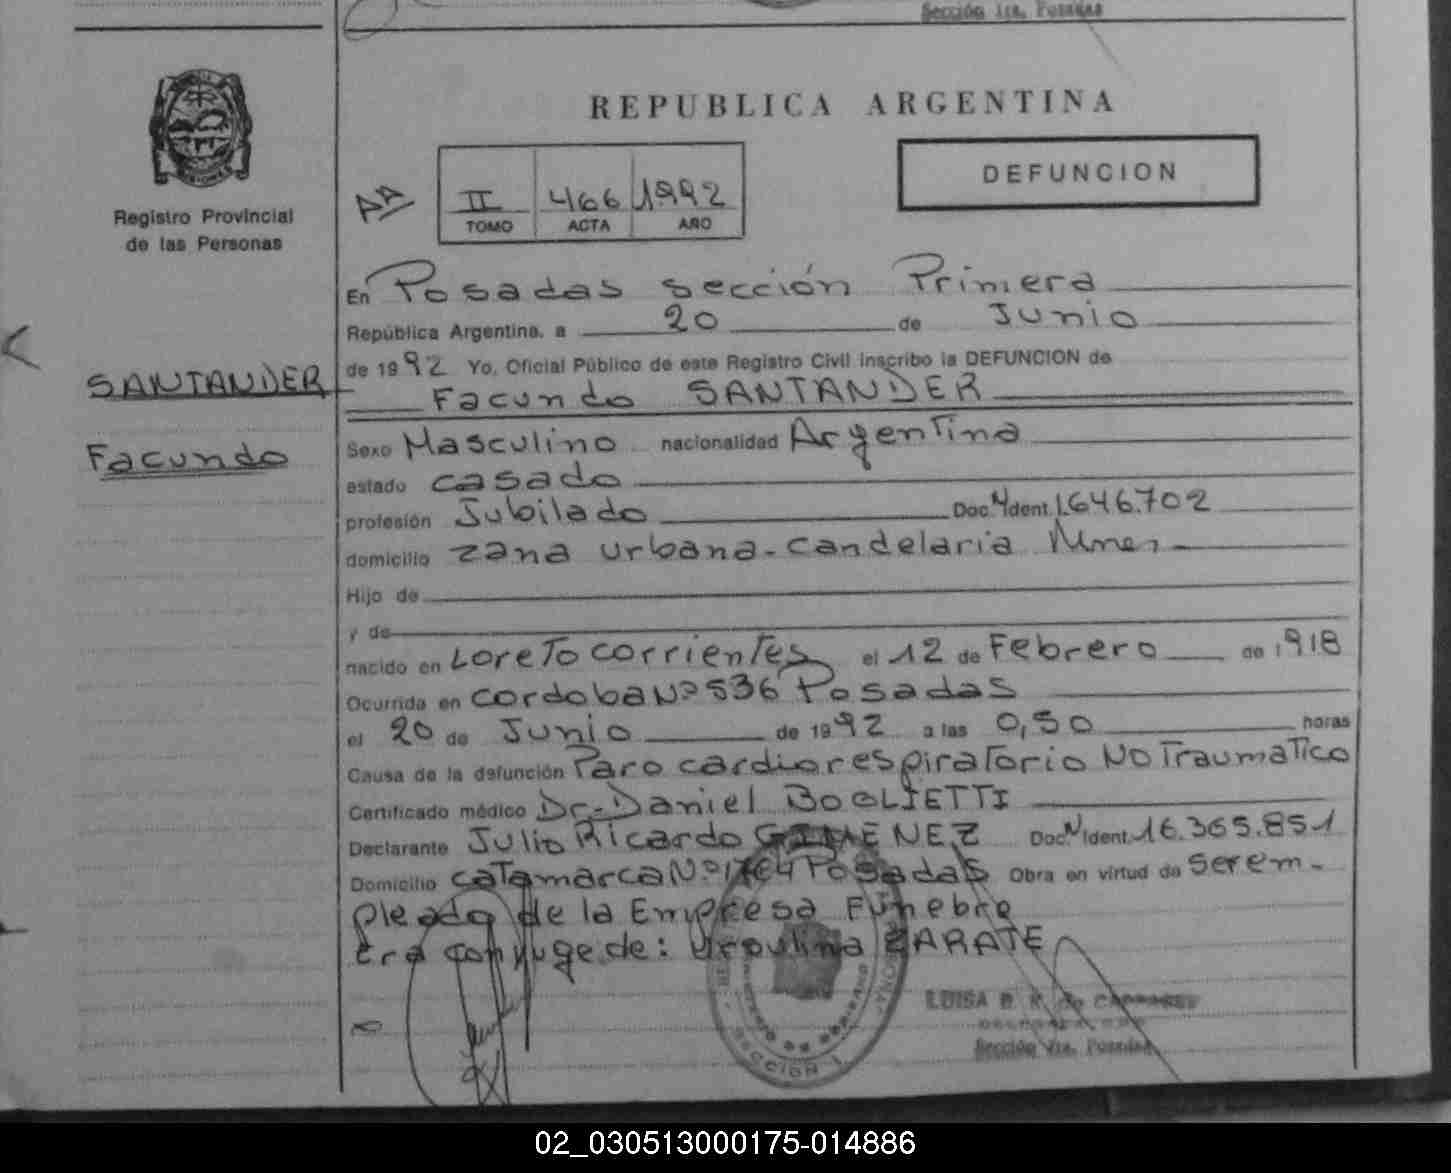 Sección 1ra. Posadas
REPUBLICA ARGENTINA
DEFUNCION
Registro Provincial
de las Personas
AA
II 466 1992
TOMO ACTA AÑO
En Posadas sección Primera
República Argentina, a 20 de Junio
de 1992 Yo, Oficial Público de este Registro Civil inscribo la DEFUNCION de
SANTANDER
Facundo SANTANDER
Facundo
Sexo Masculino nacionalidad Argentina
estado casado
profesión Jubilado Doc. N Ident. 1.646.702
domicilio zana urbana - candelaria Mnes -
Hijo de
y de
nacido en Loreto corrientes el 12 de Febrero de 1918
Ocurrida en cordoba Nº 536 Posadas
el 20 de Junio de 1992 a las 0,50 horas
Causa de la defunción Paro cardiorespiratorio NO Traumatico
Certificado médico Dr. Daniel BOGLIETTI
Declarante Julio Ricardo GIMENEZ Doc. N Ident. 16.365.851
Domicilio catamarca Nº Posadas Obra en virtud de ser em-
pleado de la Empresa Funebre
Era conyuge de: Urpulina ZARATE
LUISA
Sección 1ra. Posadas
SECCION 1
02_030513000175-014886